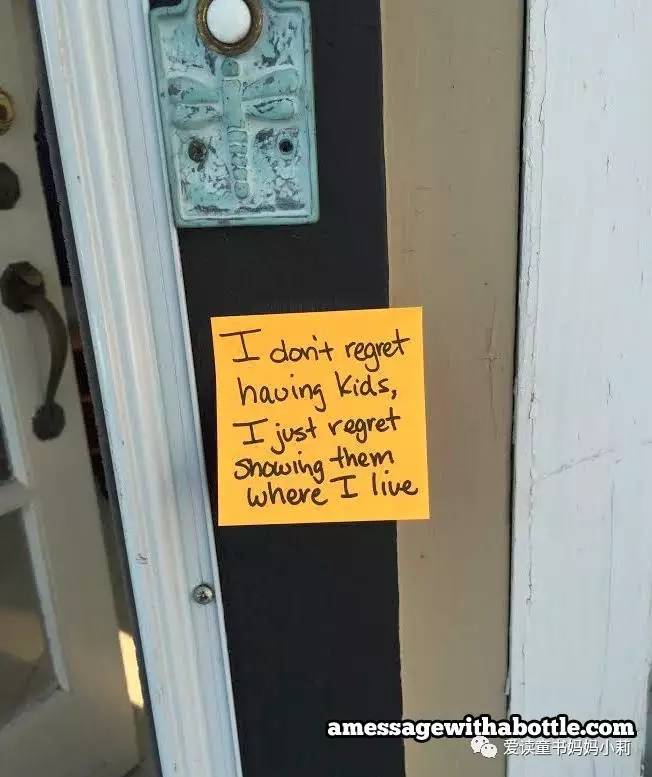 I don't regret
having kids,
I just regret
showing them
where I live
amessagewithabottle.com
爱读童书妈妈小莉